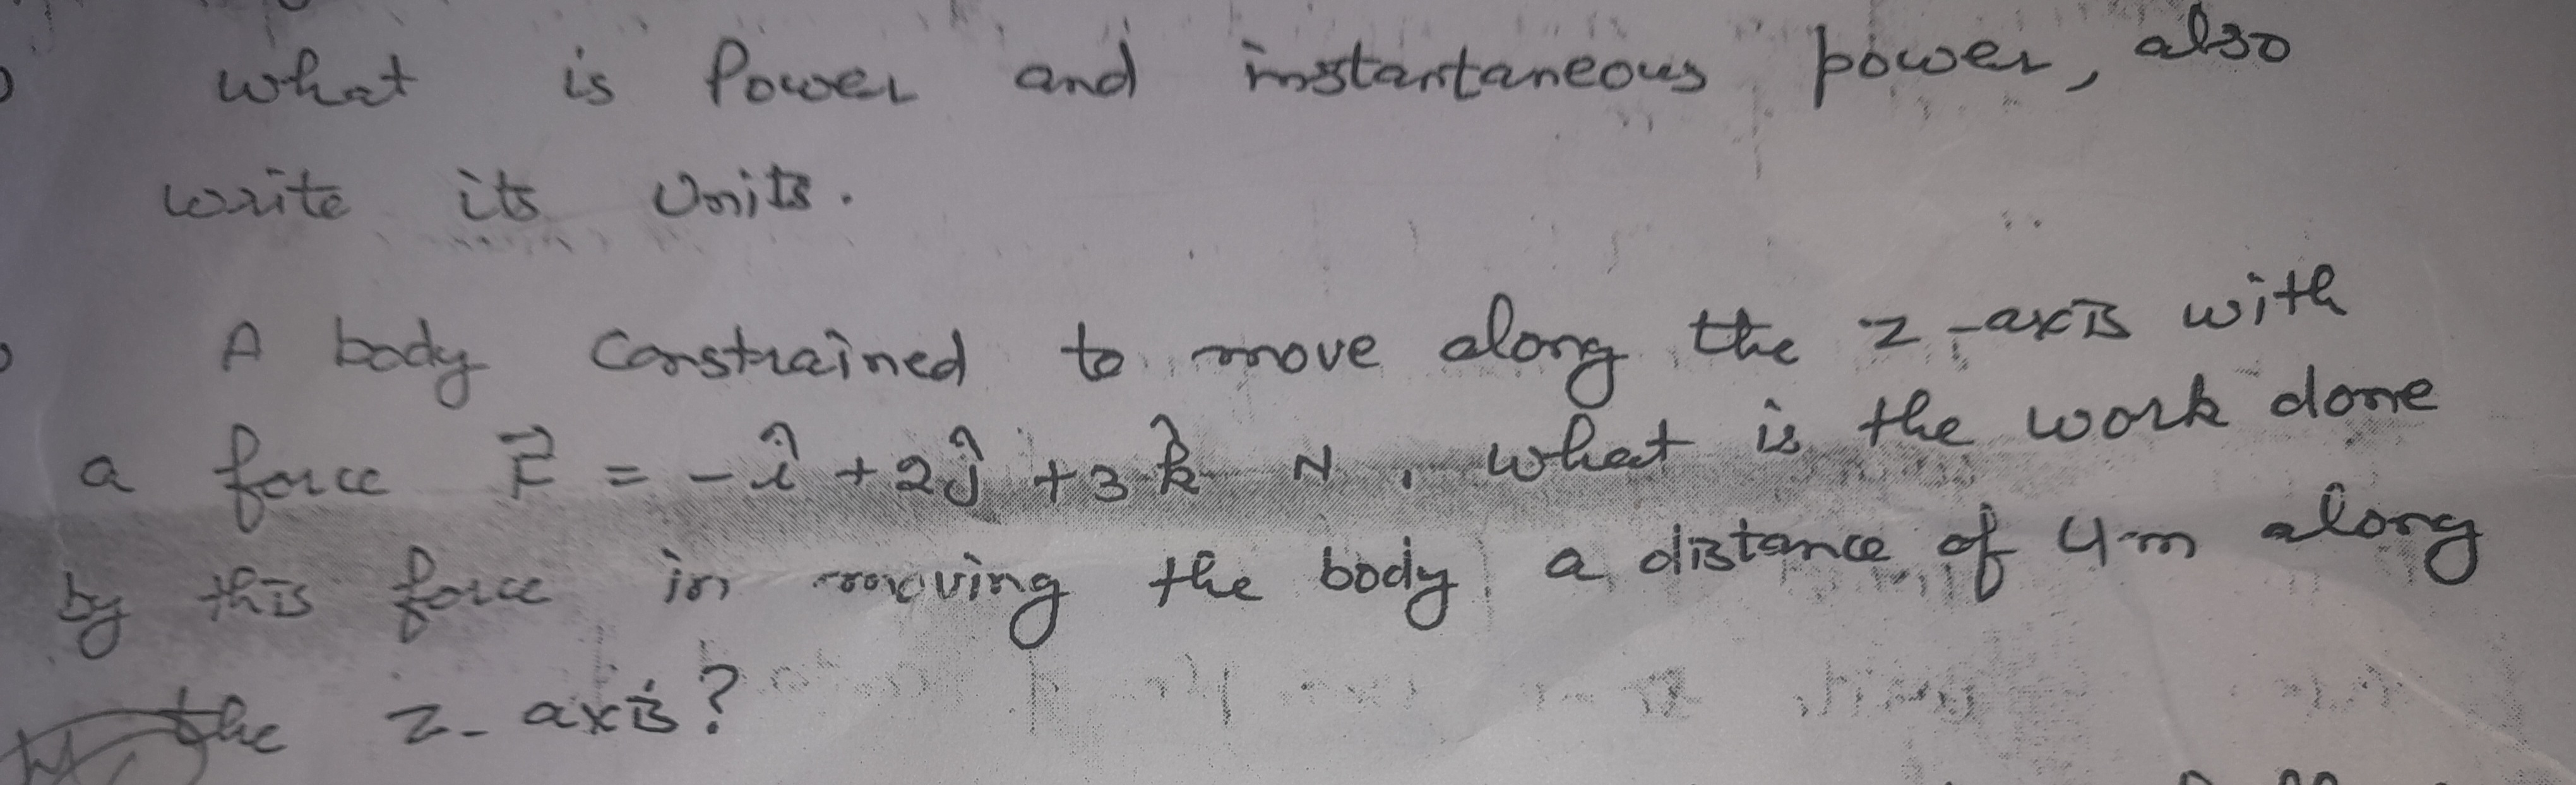 what is Power and instantaneous power, also
write its Units.
A body constrained to move along the z-axis with
a force F⃗ = -î + 2ĵ + 3k̂ N, what is the work done
by this force in moving the body a distance of 4m along
the z-axis?